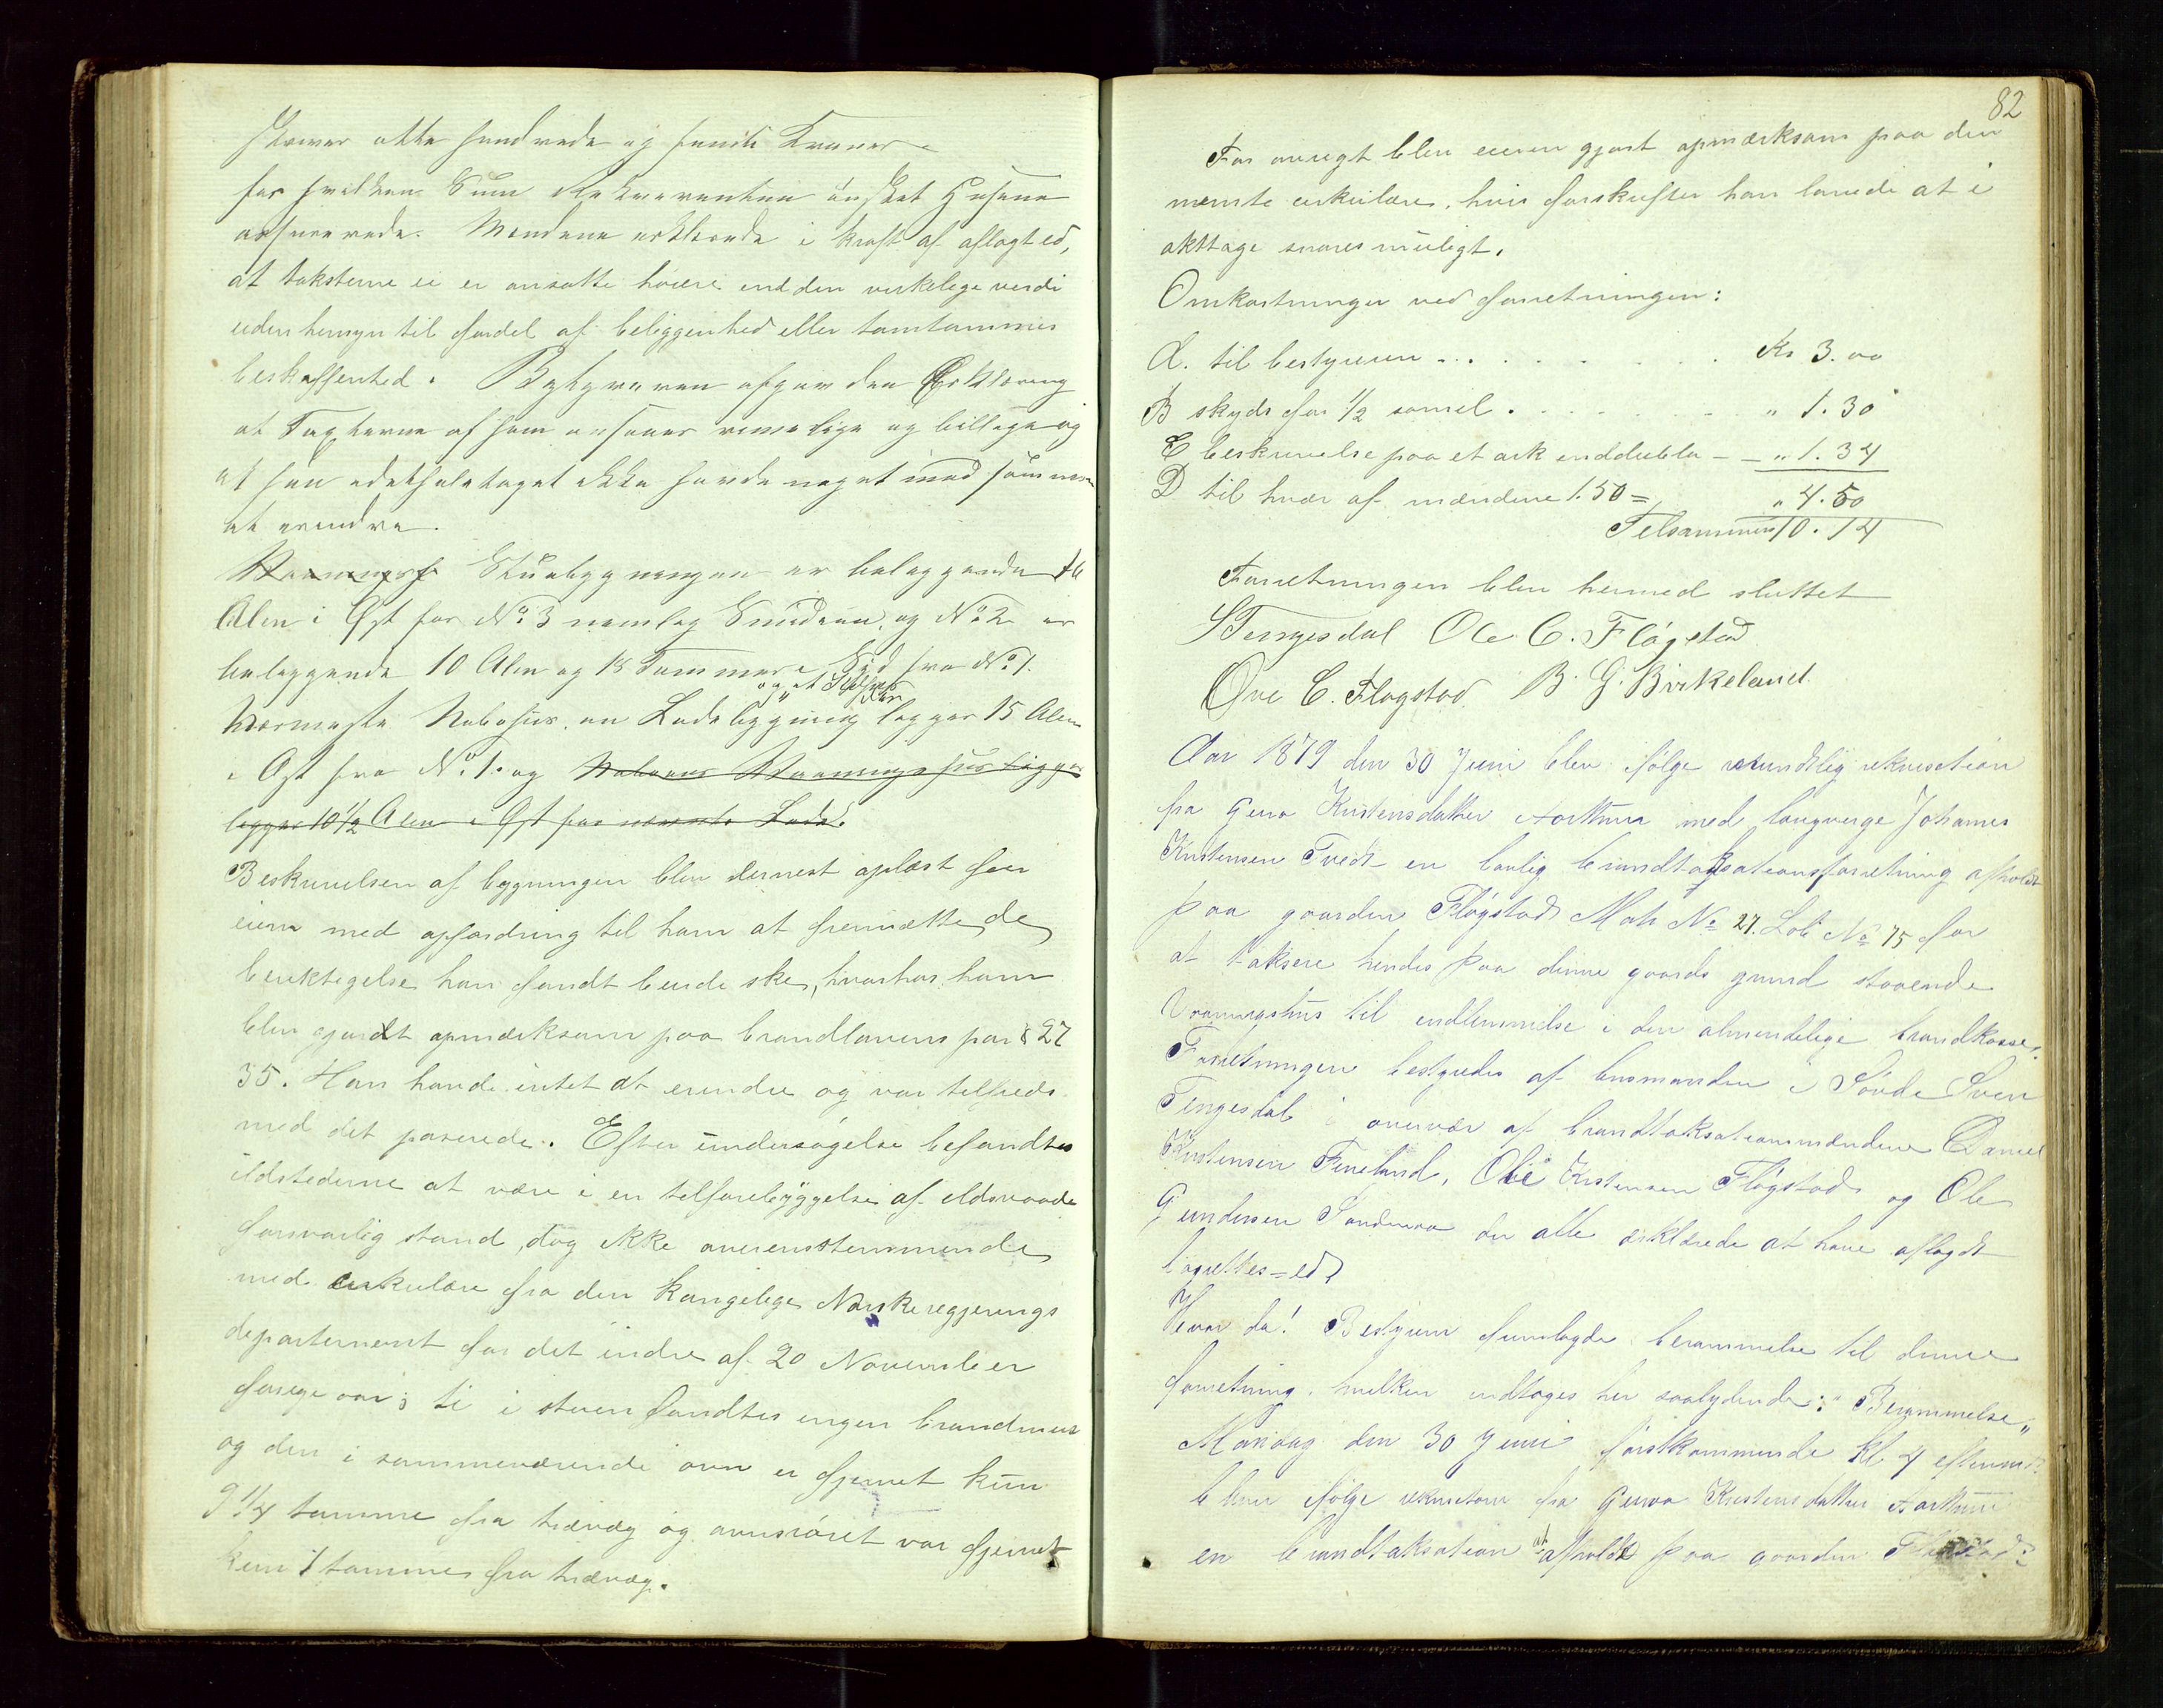 skriver otte hundrede og femti Kroner
for hvilken Sum Rekvirenten ønsket Husene
assurerede. Mændene erklærede i kraft af aflagt ed,
at taksterne ei er ansatte høiere end den virkelige verdi
uden hensyn til fordel af beliggenhed eller tomtammes
beskaffenhed. Bestyreren afgav den Erklæring
at Taxterne af ham ansees rimelige og billige og
at han idethelataget ikke havde noget mod samme
at erindre.
Stuebygningen er beliggende 16
Alen i Øst for No 3 nemlig Smidien, og No 2 er
beliggende 10 Alen og 18 Tommer i Syd fra No 1.
og et
Nærmeste Nabohus, en Ladebygning ligger 15 Alen
i Øst fra No 1. og Naboens Vaaningshus ligger
ligger 10 1/2 Alen i Øst fra nævnte Lade.
Beskrivelsen af bygningen blev dernest oplæst for
eieren med opfordring til ham at fremsætte de
berktigelse han fandt burde ske, hvorhos han
blev gjordt opmærksom paa brandlovens par § 27
35. Han havde intet at erindre og var tilfreds
med det paserede. Efter undersøgelse befandtes
ildstederne at være i en tilforebyggelse af ildsvaade
forsvarlig stand, dog ikke overensstemmende
med cirkulære fra den kongelige Norske regjerings
departement for det indre af 20 November
forige aar; ti i stuen fandtes ingen brandmur
og den i sammeværende ovn er fjernet kun
9 1/4 tomme fra trævæg og ovnsrøret var fjernet
kun 7 tommer fra trævæg.
82
For øvrigt blev eieren gjort opmærksom paa den
nævnte cirkulære, hvis forskrifter han lovede at i
akttage snarest muligt.
Omkostninger ved forretningen:
A. til bestyreren . . . Kr 3.00
B skyds for 1/2 somil . . . " 1.30
C beskrivelse paa et ark inddubla - " 1.34
D til hver af mændene 1.50 = " 4.50
Tilsammen 10.14
Forretningen blev hermed sluttet
S Tengesdal Ole C. Fløgstad
Ove C. Fløgstad B. G. Birkeland.
Aar 1879 den 30 Juni blev ifølge mundtlig rekvisation
fra Guro Kristensdatter Aarthun med laugverge Johannes
Kristensen Tvedt en lovlig brandtaksationsforretning afholdt
paa gaarden Fløgstad Matr No 27. Løb No 75 for
at taksere hendes paa denne gaards grund staaende
Vaaningshus til indlemmelse i den almindelige brandkasse.
Forretningen bestyredes af lensmanden i Søvde Sven
Tengesdal i overvær af brandtaksationsmændene Daniel
Kristensen Fineland, Ole Kristensen Fløgstad og Ole
Gundersen Sandvere der alle erklærede at have aflagdt
lagrettes-ed.
Hvor da! Bestyreren fremlagde berammelse til denne
forretning, hvilken indtoges her saalydende: "Berammelse"
Mandag den 30 Juni førstkommende kl 4 eftermd.
bliver ifølge rekvisition fra Guro Kristensdatter Aarthun
en brandtaksation at afholde paa gaarden Fløgstad: